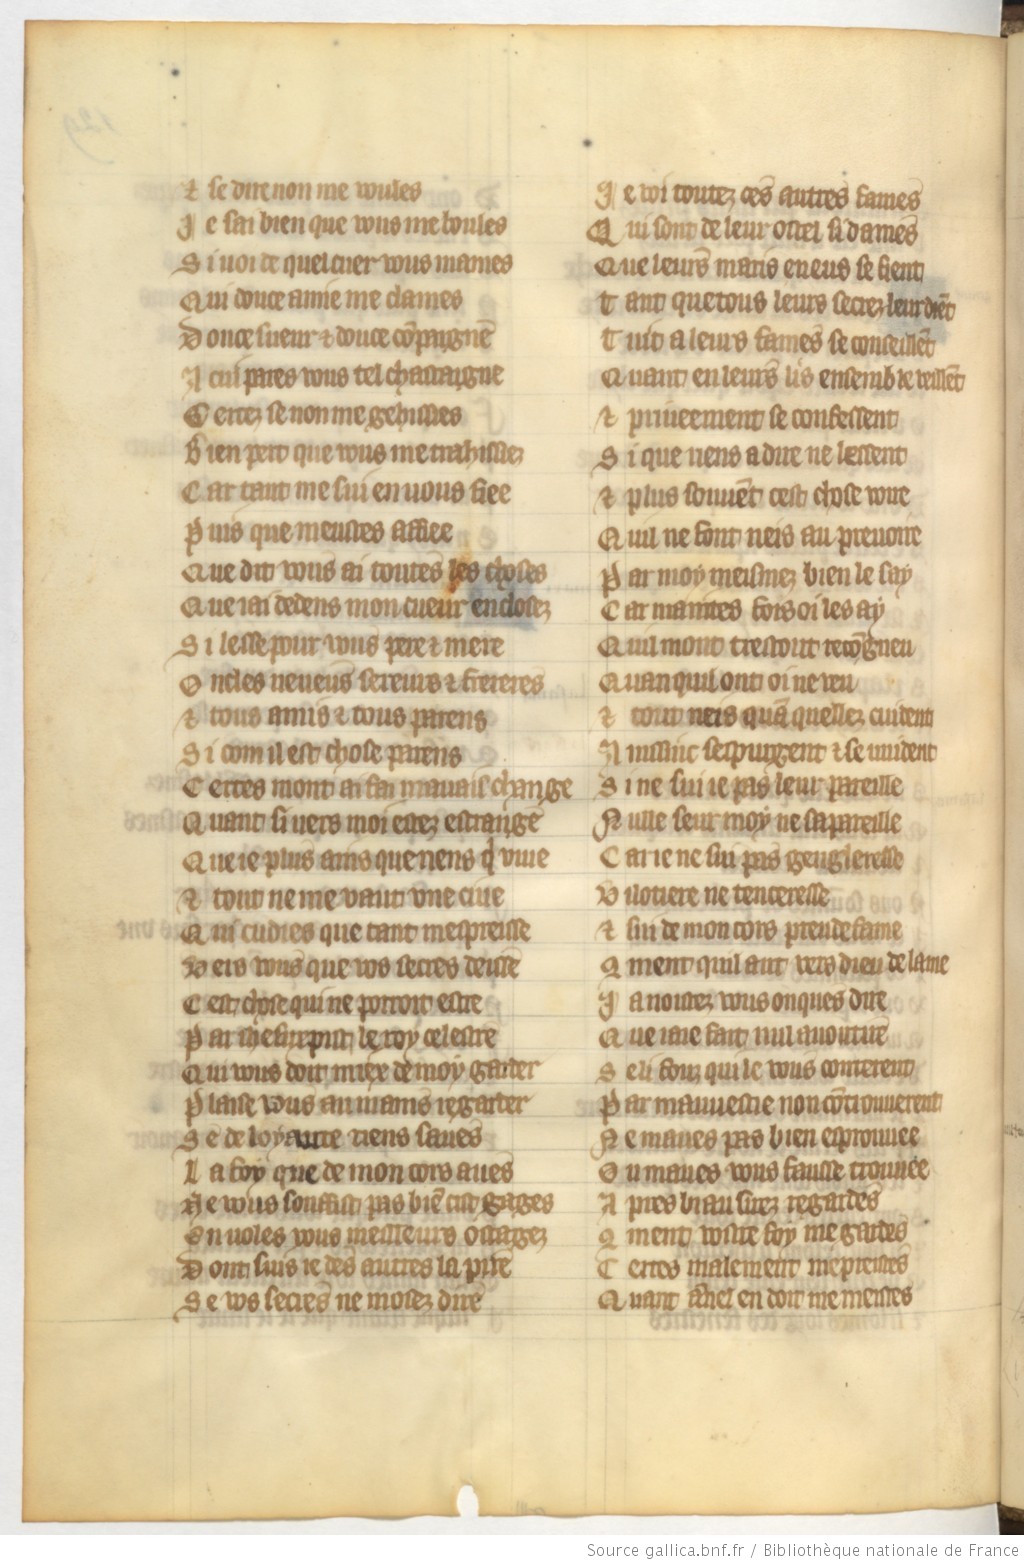 ⁊ se dire non me voules
Je sai bien que vous me boules
Si voi de quel cuer vous mames
Qui douce amie me clames
Douce sueur ⁊ douce cōpaigne
A cui pares vous tel chastaigne
Certez se non me gehissies
Bien pert que vous me trahissiez
Car tant me sui en vous fiee
Puis que meustes affiee
Que dit vous ai toutes les choses
Que iai dedens mon cueur encloses
Si lesse pour vous pere ⁊ mere
Oncles neueus sereurs ⁊ freres
⁊ tous amis ⁊ tous parens
Si com il est chose parens
Certes mont ai fai mauais change
Quant si vers moi estez estrange
Que ie plus aims que riens q̄ viue
⁊ tout ne me vaut vne ciue
Qui cudies que tant mespreisse
Vers vous que vos secres deisse
Cest chose qui ne porroit estre
Par le roy celestre
Qui vous doit miex de moy garder
Plaise vous au mains regarder
Se de loyaute riens saues
La foy que de mon cors aues
Ne vous souffist pas biē cist gages
En voles vous meilleurs ostagez
Dont suis ie des autres la pire
Se vos secres ne mosez dire
Je voi toutez ces autres fames
Qui sont de leur ostel si dames
Que leurs maris en eus se fient
Tant que tous leurs secrez leur diēt
Tuit a leurs fames se conseillēt
Quant en leurs lis ensemble veillēt
⁊ priueement se confessent
Si que riens a dire ne lessent
⁊ plus souuēt cest chose voire
Quil ne font neis au prouoire
Par moy meismez bien le say
Car maintes fois oi les ay
Quil mont trestout recōgneu
Quanquil ont oi ne veu
⁊ tout neis quāquellez cuident
Ainssinc sespurgent ⁊ se vuident
Si ne sui ie pas leur pareille
Nulle seur moy ne sapareille
Car ie ne sui pas gengleresse
Vilotiere ne tenceresse
⁊ sui de mon cors preudefame
Qment quil aut vers dieu de lame
Ja noistez vous onques dire
Que iaie fait nul auoutire
Se li fouz qui le vous conterent
Par mauuestie non cōtrouuerent
Ne maues pas bien esprouuee
Ou maues vous fausse trouuee
Apres biau sirez regardes
Qment vostre foy me gardes
Certes malement mepreistes
Quant anel en doit me meistes